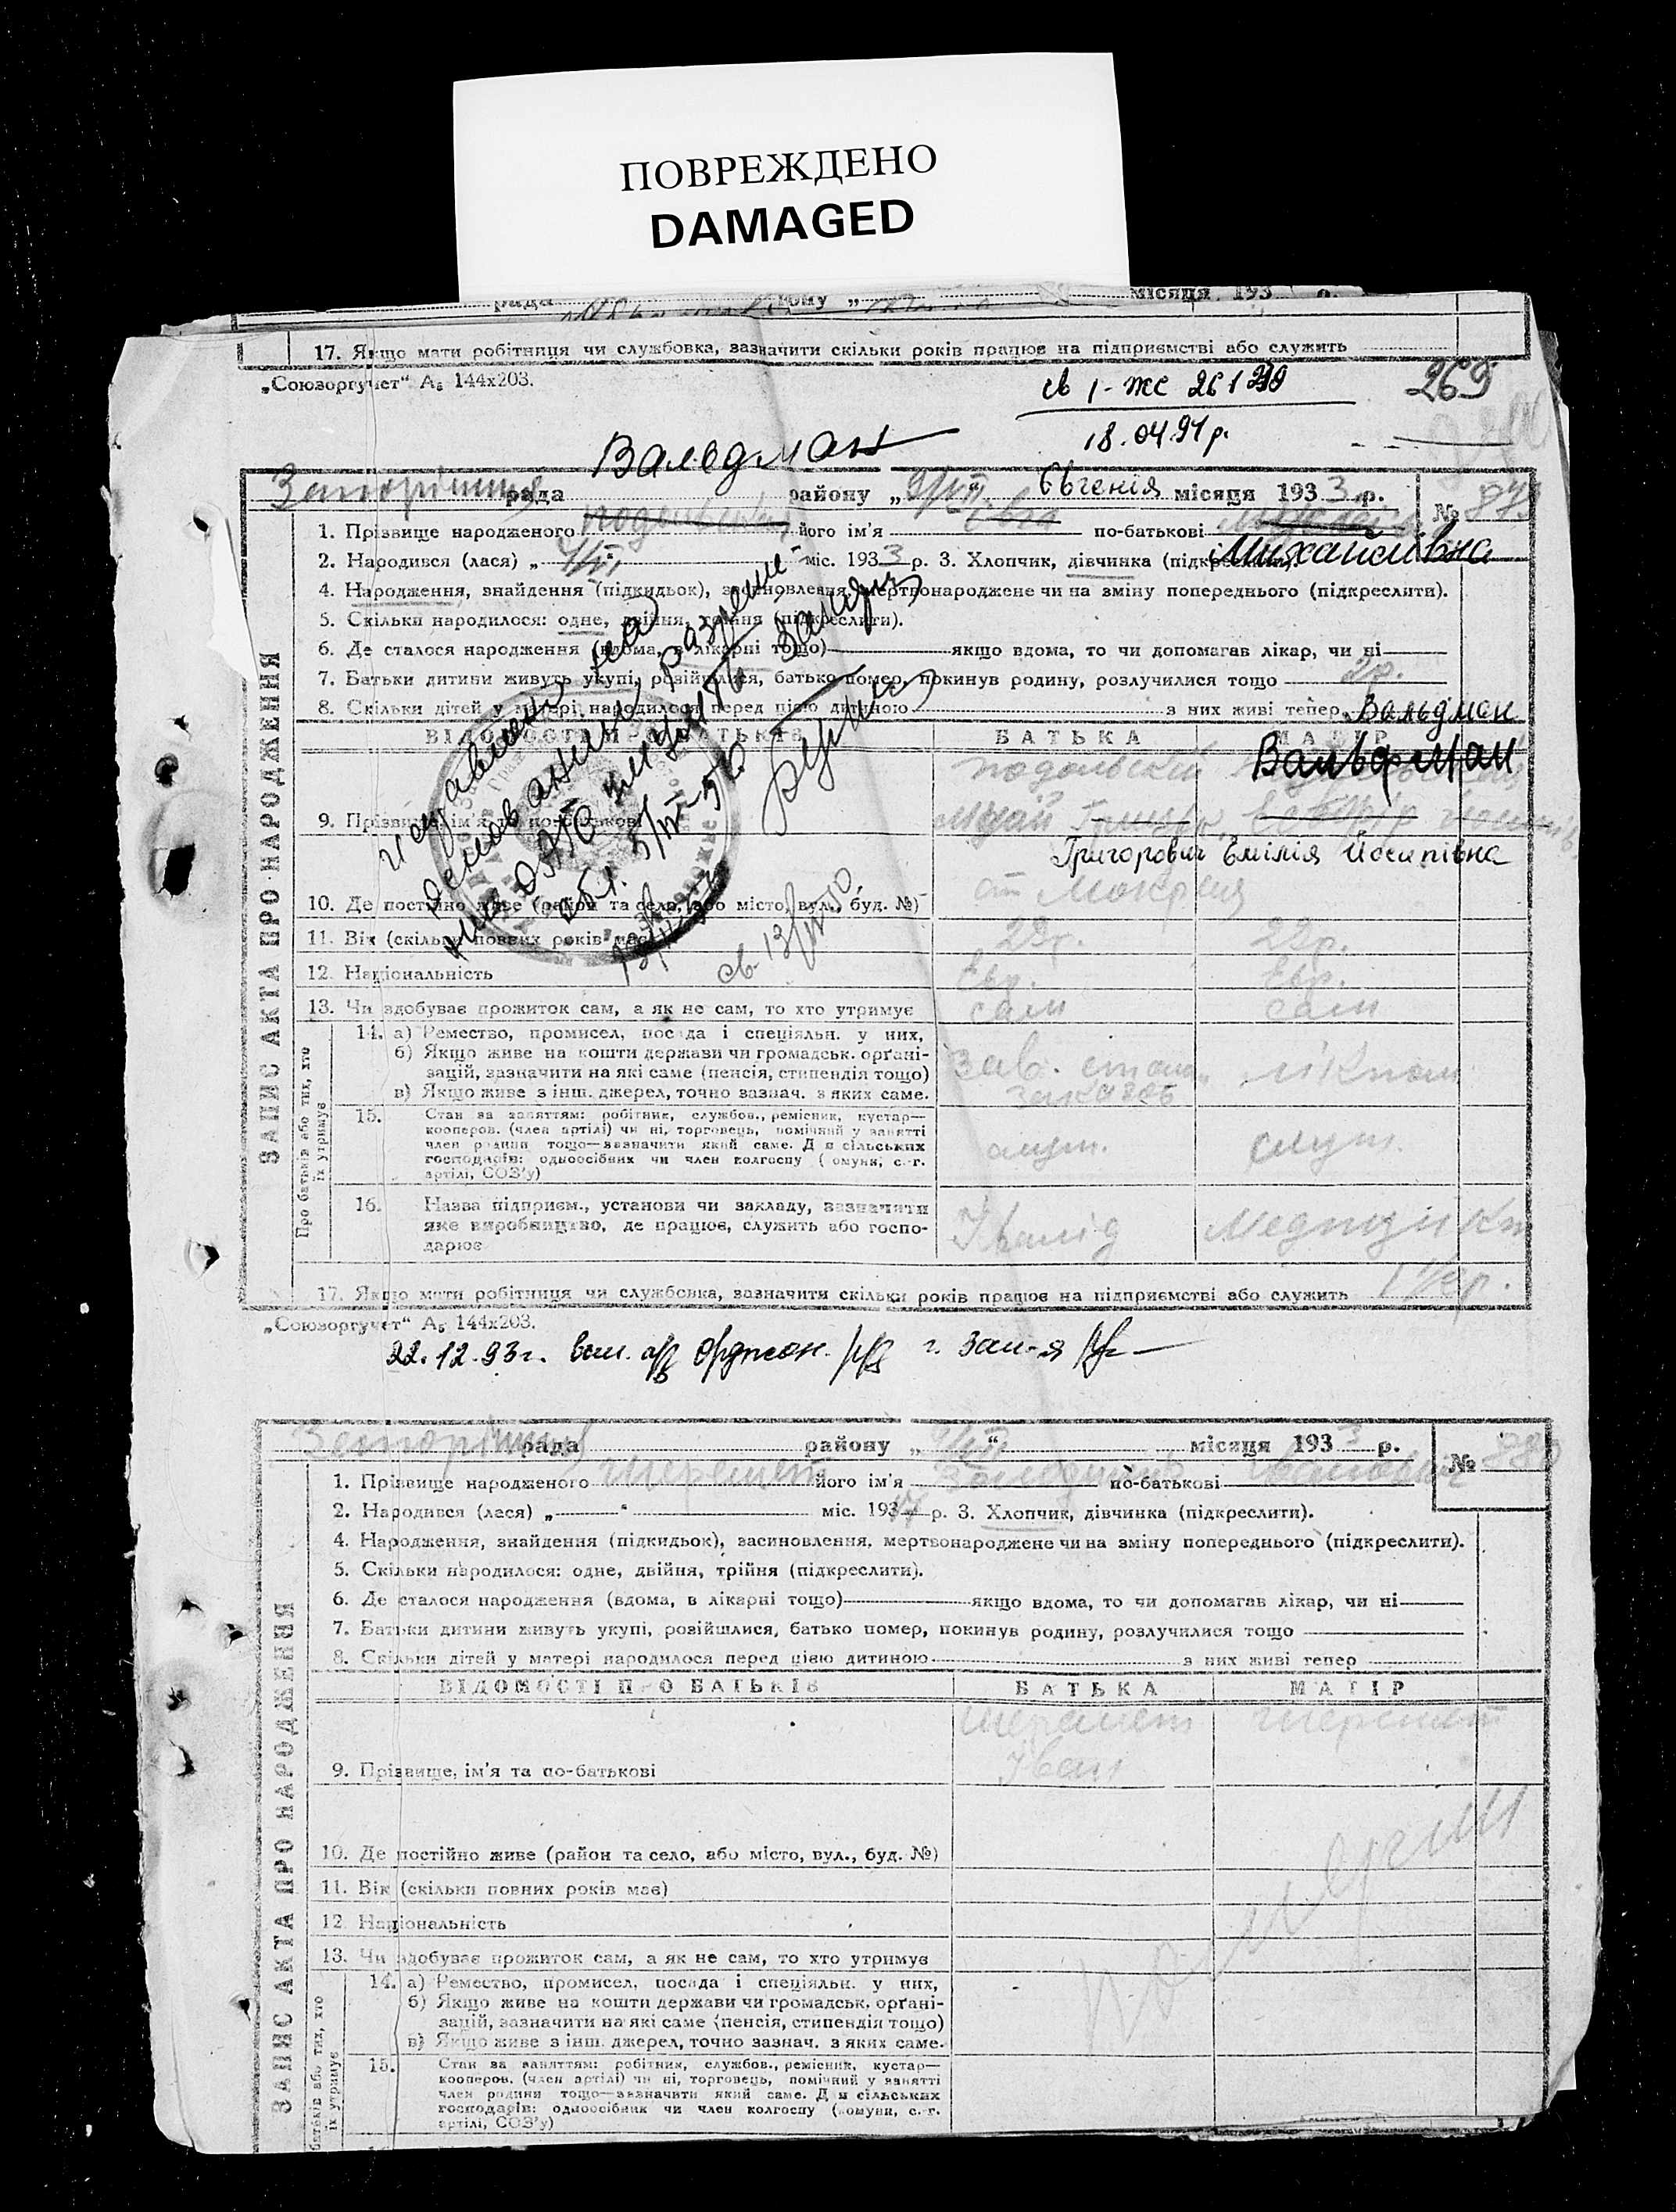 ПОВРЕЖДЕНО
DAMAGED
рада району „ місяця 193 р.
17. Якщо мати робітниця чи службовка, зазначити скільки років працює на підприємстві або служить
„Союзоргучет“ А₅ 144х203.
св 1-ЖС 261
269
18.04.91р.
Вальдман
Запоріжжя рада району „9/VII“ Євгенія місяця 1933 р.
№ 879
1. Прізвище народженого його ім'я Єва по-батькові
Михайлівна
2. Народився (лася) „ міс. 1933 р. 3. Хлопчик, дівчинка (підкреслити).
4. Народження, знайдення (підкидьок), засиновлення, мертвонароджене чи на зміну попереднього (підкреслити).
5. Скільки народилося: одне, двійня, трійня (підкреслити).
6. Де сталося народження (вдома, в лікарні тощо) якщо вдома, то чи допомагав лікар, чи ні
7. Батьки дитини живуть укупі, розійшлися, батько помер, покинув родину, розлучилися тощо
8. Скільки дітей у матері народилося перед цією дитиною з них живі тепер
Вальдман
ВІДОМОСТІ ПРО БАТЬКІВ БАТЬКА МАТІР
исправлено на
основании разрешения
обл. 5/III-50
св 13/III 50
Подольский Вальдман
9. Прізвище, ім'я та по-батькові
Григорович Емілія Йосипівна
10. Де постійно живе (район та село, або місто, вул., буд. №) ст Мокрая
11. Вік (скільки повних років має) 23р. 22р.
12. Національність Євр. Євр.
13. Чи здобуває прожиток сам, а як не сам, то хто утримує сам сам
ЗАПИС АКТА ПРО НАРОДЖЕННЯ
Про батьків або тих, хто
їх утримує
14. а) Ремество, промисел, посада і спеціяльн. у них,
б) Якщо живе на кошти держави чи громадськ. організацій, зазначити на які саме (пенсія, стипендія тощо)
в) Якщо живе з інш. джерел, точно зазнач. з яких саме.
Зав.
15. Стан за заняттям: робітник, службов., ремісник, кустар—
кооперов. (член артілі) чи ні, торговець, помічний у занятті
член родини тощо—зазначити який саме. Для сільських
господарів: одноосібник чи член колгоспу (комуни, с.-г.
артілі, СОЗ'у)
служ. служ.
16. Назва підприєм., установи чи закладу, зазначити
яке виробництво, де працює, служить або госпо-
дарює
17. Якщо мати робітниця чи службовка, зазначити скільки років працює на підприємстві або служить
„Союзоргучет“ А₅ 144х203.
22.12.93г. г. Зап-я
Запоріжжя рада району „ “ місяця 1933 р.
№ 880
1. Прізвище народженого Шеремет його ім'я по-батькові Іванович
2. Народився (лася) „ “ міс. 1917 р. 3. Хлопчик, дівчинка (підкреслити).
4. Народження, знайдення (підкидьок), засиновлення, мертвонароджене чи на зміну попереднього (підкреслити).
5. Скільки народилося: одне, двійня, трійня (підкреслити).
6. Де сталося народження (вдома, в лікарні тощо) якщо вдома, то чи допомагав лікар, чи ні
7. Батьки дитини живуть укупі, розійшлися, батько помер, покинув родину, розлучилися тощо
8. Скільки дітей у матері народилося перед цією дитиною з них живі тепер
ВІДОМОСТІ ПРО БАТЬКІВ БАТЬКА МАТІР
Шеремет Шеремет
Іван
9. Прізвище, ім'я та по-батькові
10. Де постійно живе (район та село, або місто, вул., буд. №)
11. Вік (скільки повних років має)
12. Національність
13. Чи здобуває прожиток сам, а як не сам, то хто утримує
ЗАПИС АКТА ПРО НАРОДЖЕННЯ
батьків або тих, хто
їх утримує
14. а) Ремество, промисел, посада і спеціяльн. у них,
б) Якщо живе на кошти держави чи громадськ. органі-
зацій, зазначити на які саме (пенсія, стипендія тощо)
в) Якщо живе з інш. джерел, точно зазнач. з яких саме.
15. Стан за заняттям: робітник, службов., ремісник, кустар—
кооперов. (член артілі) чи ні, торговець, помічний у занятті
член родини тощо—зазначити який саме. Для сільських
господарів: одноосібник чи член колгоспу (комуни, с.-г.
артілі, СОЗ'у)